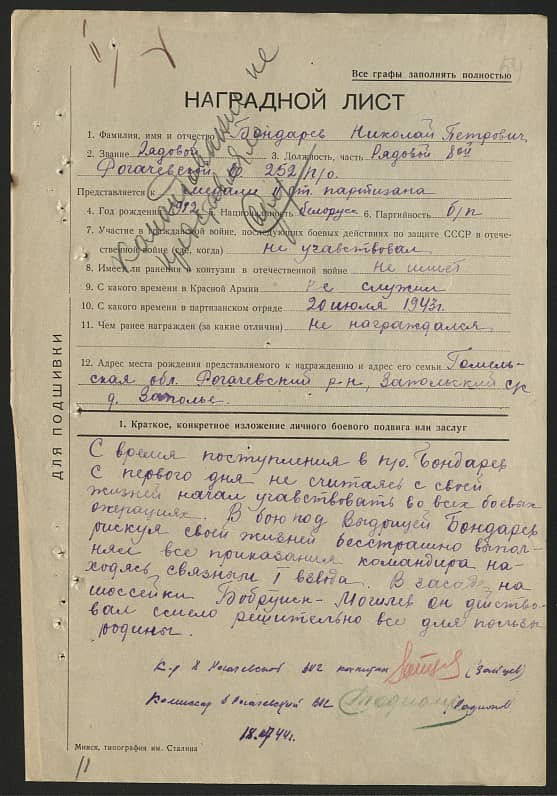 Все графы заполнять полностью
НАГРАДНОЙ ЛИСТ
1. Фамилия, имя и отчество Бондарев Николай Петрович,
2. Звание Рядовой 3. Должность, часть Рядовой 8ой
Рогачевской 252 п/о.
Представляется к медали II ст. партизана
4. Год рождения 5. Национальность белорусс 6. Партийность б/п
7. Участие в гражданской войне, последующих боевых действиях по защите СССР в отече-
ственной войне (где, когда) не учавствовал
8. Имеет ли ранения и контузии в отечественной войне Не имеет
9. С какого времени в Красной Армии Не служил
10. С какого времени в партизанском отряде 20 июля 1943г.
11. Чем ранее награжден (за какие отличия) Не награждался
12. Адрес места рождения представляемого к награждению и адрес его семьи Гомель-
ская обл. Рогачевский р-н, Запольский с/с
д. Заполье.
1. Краткое, конкретное изложение личного боевого подвига или заслуг
С время поступления в п/о. Бондарев
С первого дня не считаясь с своей
жизней начал учавствовать во всех боевых
операциях. В бою под Выдрицей Бондарев
рискуя своей жизней бесстрашно выпол-
нял все приказания командира на-
ходясь связным I взвода. В засаде на
шоссейки Бобруйск-Могилев он действо-
вал смело решительно все для пользы
родины.
К-р 8 Рогачевской капитан (Зайцев)
Комиссар 8 Рогачевской
18.07.44г.
ДЛЯ ПОДШИВКИ
Минск, типография им. Сталина